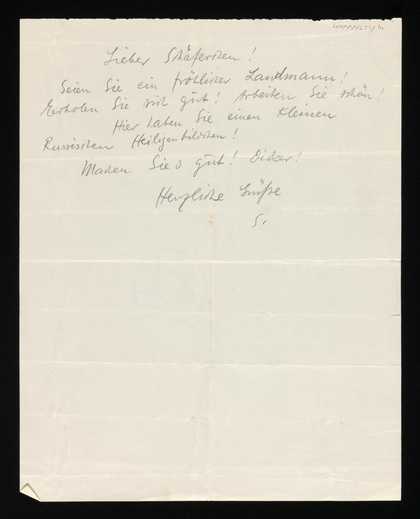 Lieber Schäferchen!
Seien Sie ein fröhlicher Landmann!
Erholen Sie sich gut! Arbeiten Sie schön!
Hier haben Sie einen kleinen
Russischen Heiligenbildchen!
Machen Sie's gut!
Herzliche Grüße
S.